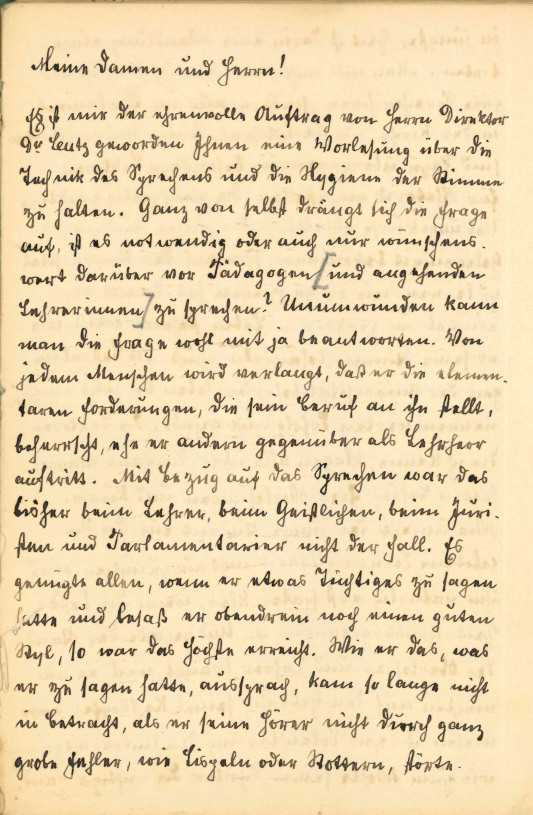 Meine Damen und Herrn!
Es ist mir der ehrenvolle Auftrag von Herrn Direktor
Dr. Leutz geworden Ihnen eine Vorlesung über die
Technik des Sprechens und die Hygiene der Stimme
zu halten. Ganz von selbst drängt sich die Frage
auf, ist es notwendig oder auch nur wünschens-
wert darüber vor Pädagogen [und angehenden
Lehrerinnen] zu sprechen? Unumwunden kann
man die Frage wohl mit ja beantworten. Von
jedem Menschen wird verlangt, daß er die elemen-
taren Forderungen, die sein Beruf an ihn stellt,
beherrscht, ehe er andern gegenüber als Lehrherr
auftritt. Mit Bezug auf das Sprechen war das
bisher beim Lehrer, beim Geistlichen, beim Juri-
sten und Parlamentarier nicht der Fall. Es
genügte allen, wenn er etwas Tüchtiges zu sagen
hatte und besaß er obendrein noch einen guten
Styl, so war das Höchste erreicht. Wie er das, was
er zu sagen hatte, aussprach, kam so lange nicht
in Betracht, als er seine Hörer nicht durch ganz
grobe Fehler, wie Lispeln oder Stottern, störte.